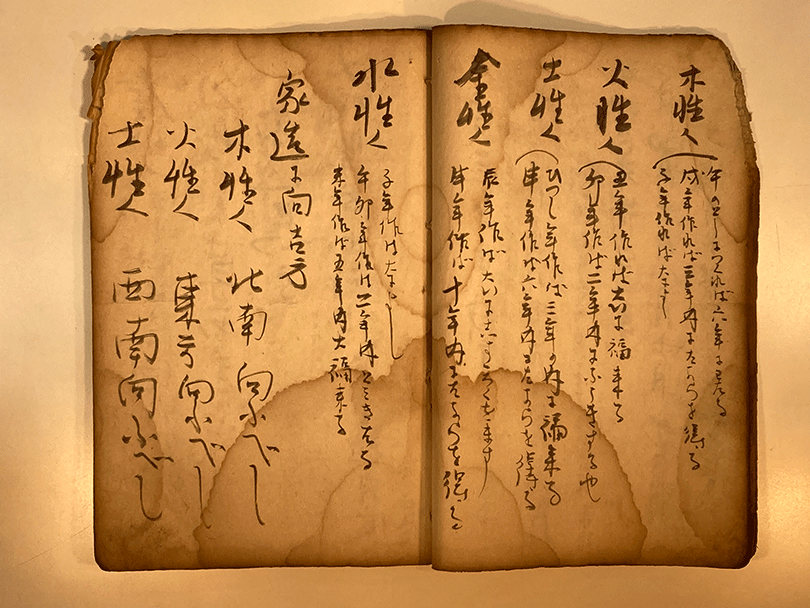 木性人
午のとしにつくれば六年に
戌年作れば三年内にたからを得る
子年作れば大よし
火性人
丑年作れば大に福来る
卯年作ば二年内に
土性人
ひつし年作ば三年の内に福来る
申年作ば六年内にたからを得る
金性人
辰年作ば大によろし
申年作ば十年内にたからを得る
水性人
子年作は大よし
午卯年作は二年内とみきたる
未年作ば五年内大福来る
家造に向吉方
木性人 北南向ふべし
火性人 東方向ふべし
土性人 西南向ふべし